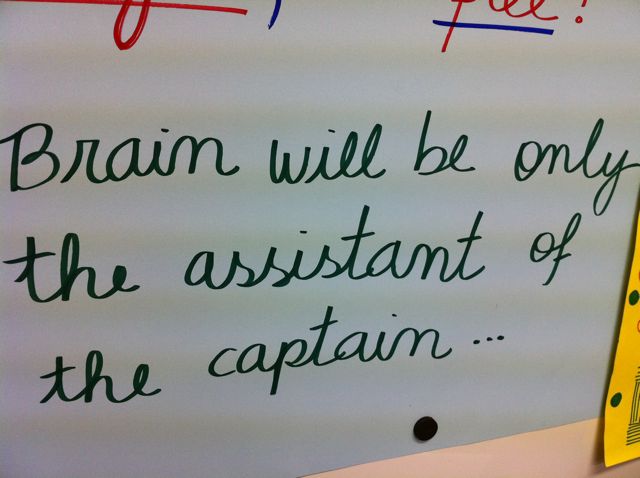 free!
Brain will be only
the assistant of
the captain...